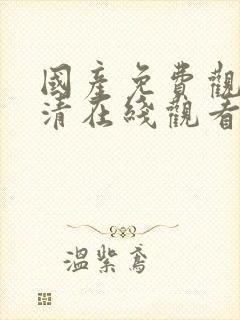 國產免費觀
清在綫觀看
溫紫鳶